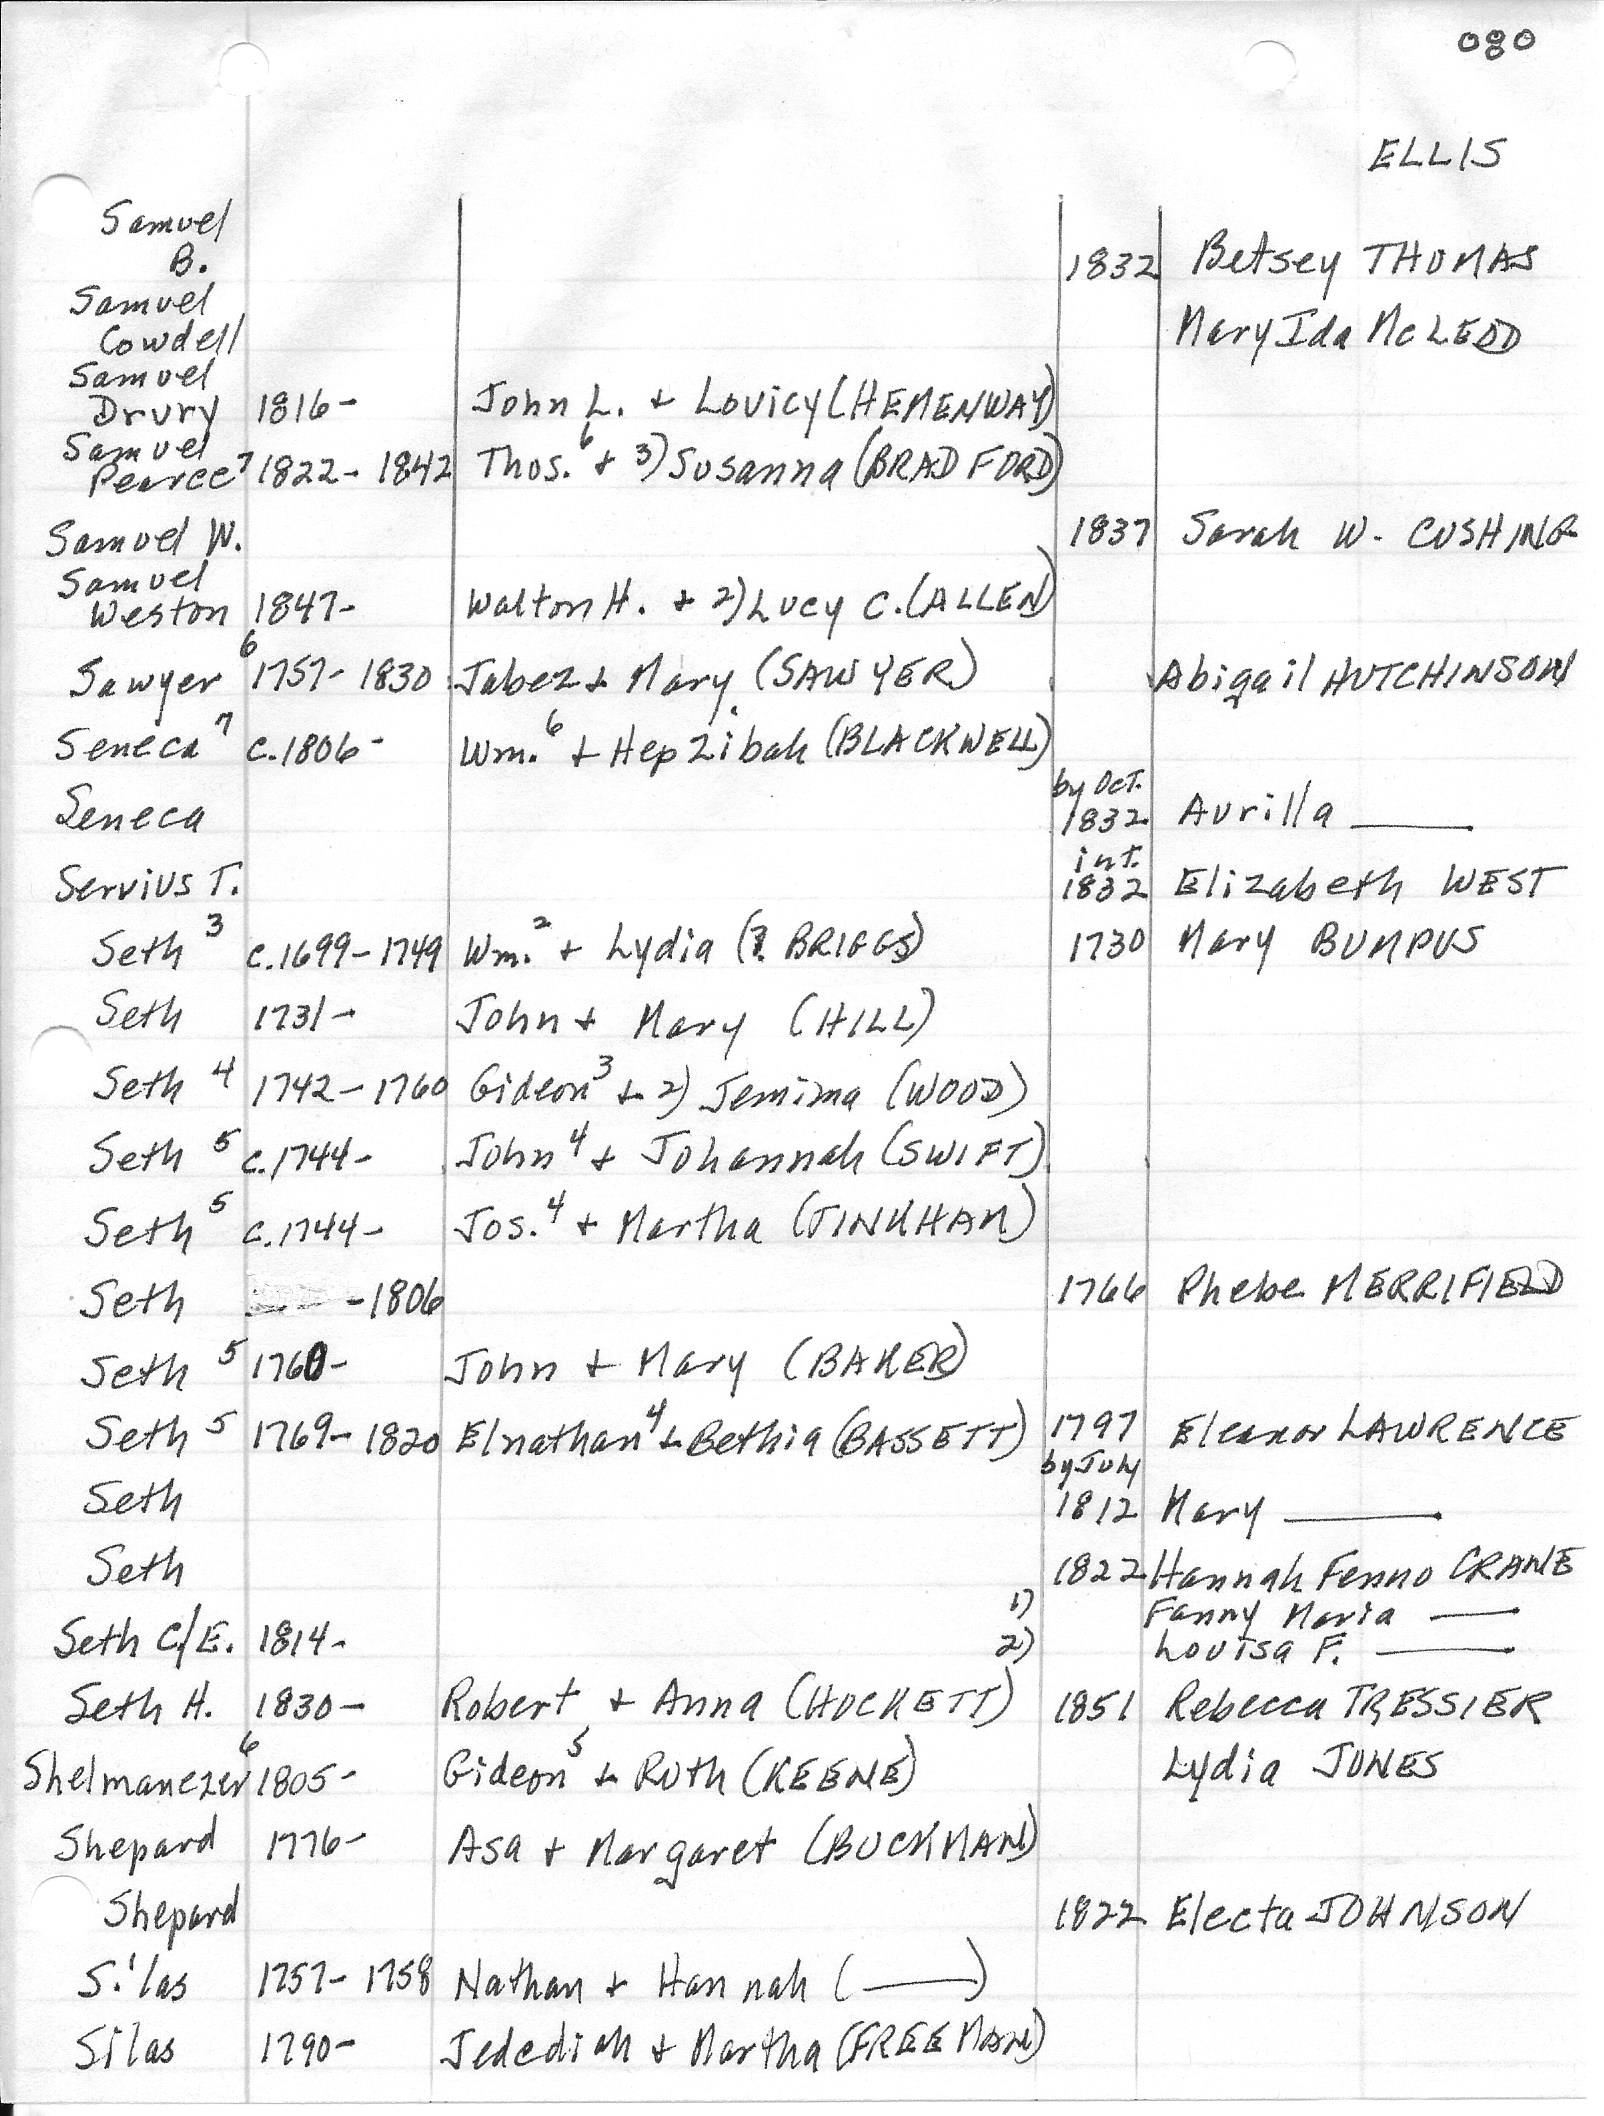 080
ELLIS
Samuel
B. 1832 Betsey THOMAS
Samuel
Cowdell Mary Ida McLEOD
Samuel
Drury 1816- John L. + Lovicy (HEMENWAY)
Samuel
Pearce⁷ 1822-1842 Thos.⁶ + 3) Susanna (BRADFORD)
Samuel W. 1837 Sarah W. CUSHING
Samuel
Weston 1847- Walton H. + 2) Lucy C. (ALLEN)
Sawyer⁶ 1757-1830 Jabez + Mary (SAWYER) Abigail HUTCHINSON
Seneca⁷ c.1806- Wm.⁶ + Hepzibah (BLACKWELL)
by Oct.
Seneca 1832 Aurilla ___
int.
Servius T. 1832 Elizabeth WEST
Seth³ c.1699-1749 Wm.² + Lydia (? BRIGGS) 1730 Mary BUMPUS
Seth 1731- John + Mary (HILL)
Seth⁴ 1742-1760 Gideon³ + 2) Jemima (WOOD)
Seth⁵ c.1744- John⁴ + Johannah (SWIFT)
Seth⁵ c.1744- Jos.⁴ + Martha (TINKHAM)
Seth -1806 1766 Phebe MERRIFIELD
Seth⁵ 1760- John + Mary (BAKER)
Seth⁵ 1769-1820 Elnathan⁴ + Bethia (BASSETT) 1797 Eleanor LAWRENCE
by July
Seth 1812 Mary ___
Seth 1822 Hannah Fenno CRANE
1) Fanny Maria ___
Seth C/E. 1814- 2) Louisa F. ___
Seth H. 1830- Robert + Anna (HOCKETT) 1851 Rebecca TRESSIER
Shelmanezer⁶ 1805- Gideon⁵ + Ruth (KEENE) Lydia JONES
Shepard 1776- Asa + Margaret (BUCKMAN)
Shepard 1822 Electa JOHNSON
Silas 1757-1758 Nathan + Hannah (___)
Silas 1790- Jedediah + Martha (FREEMAN)